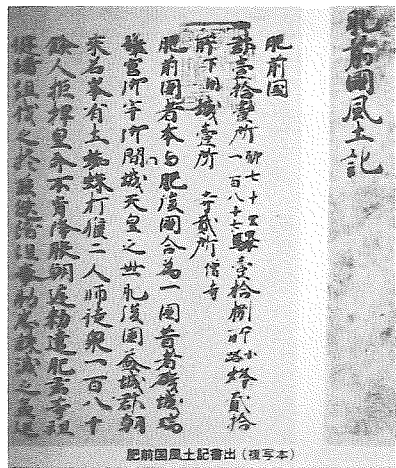 肥前國風土記
肥前国
郡壹拾壹所 郷七十 里一百八十七 驛壹拾捌所 小路 烽貳拾
所下国城壹所 寺貳所 僧寺
肥前國者本与肥後國合為一國昔者磯城瑞
籬宮御宇御間城天皇之世肥後國益城郡朝
来名峯有土蜘蛛打猴二人師徒衆一百八十
餘人拒捍皇命不肯降服朝廷勅遣肥君等祖
健緒組伐之於茲健緒組奉勅悉誅滅之兼巡
肥前国風土記書出（複写本）